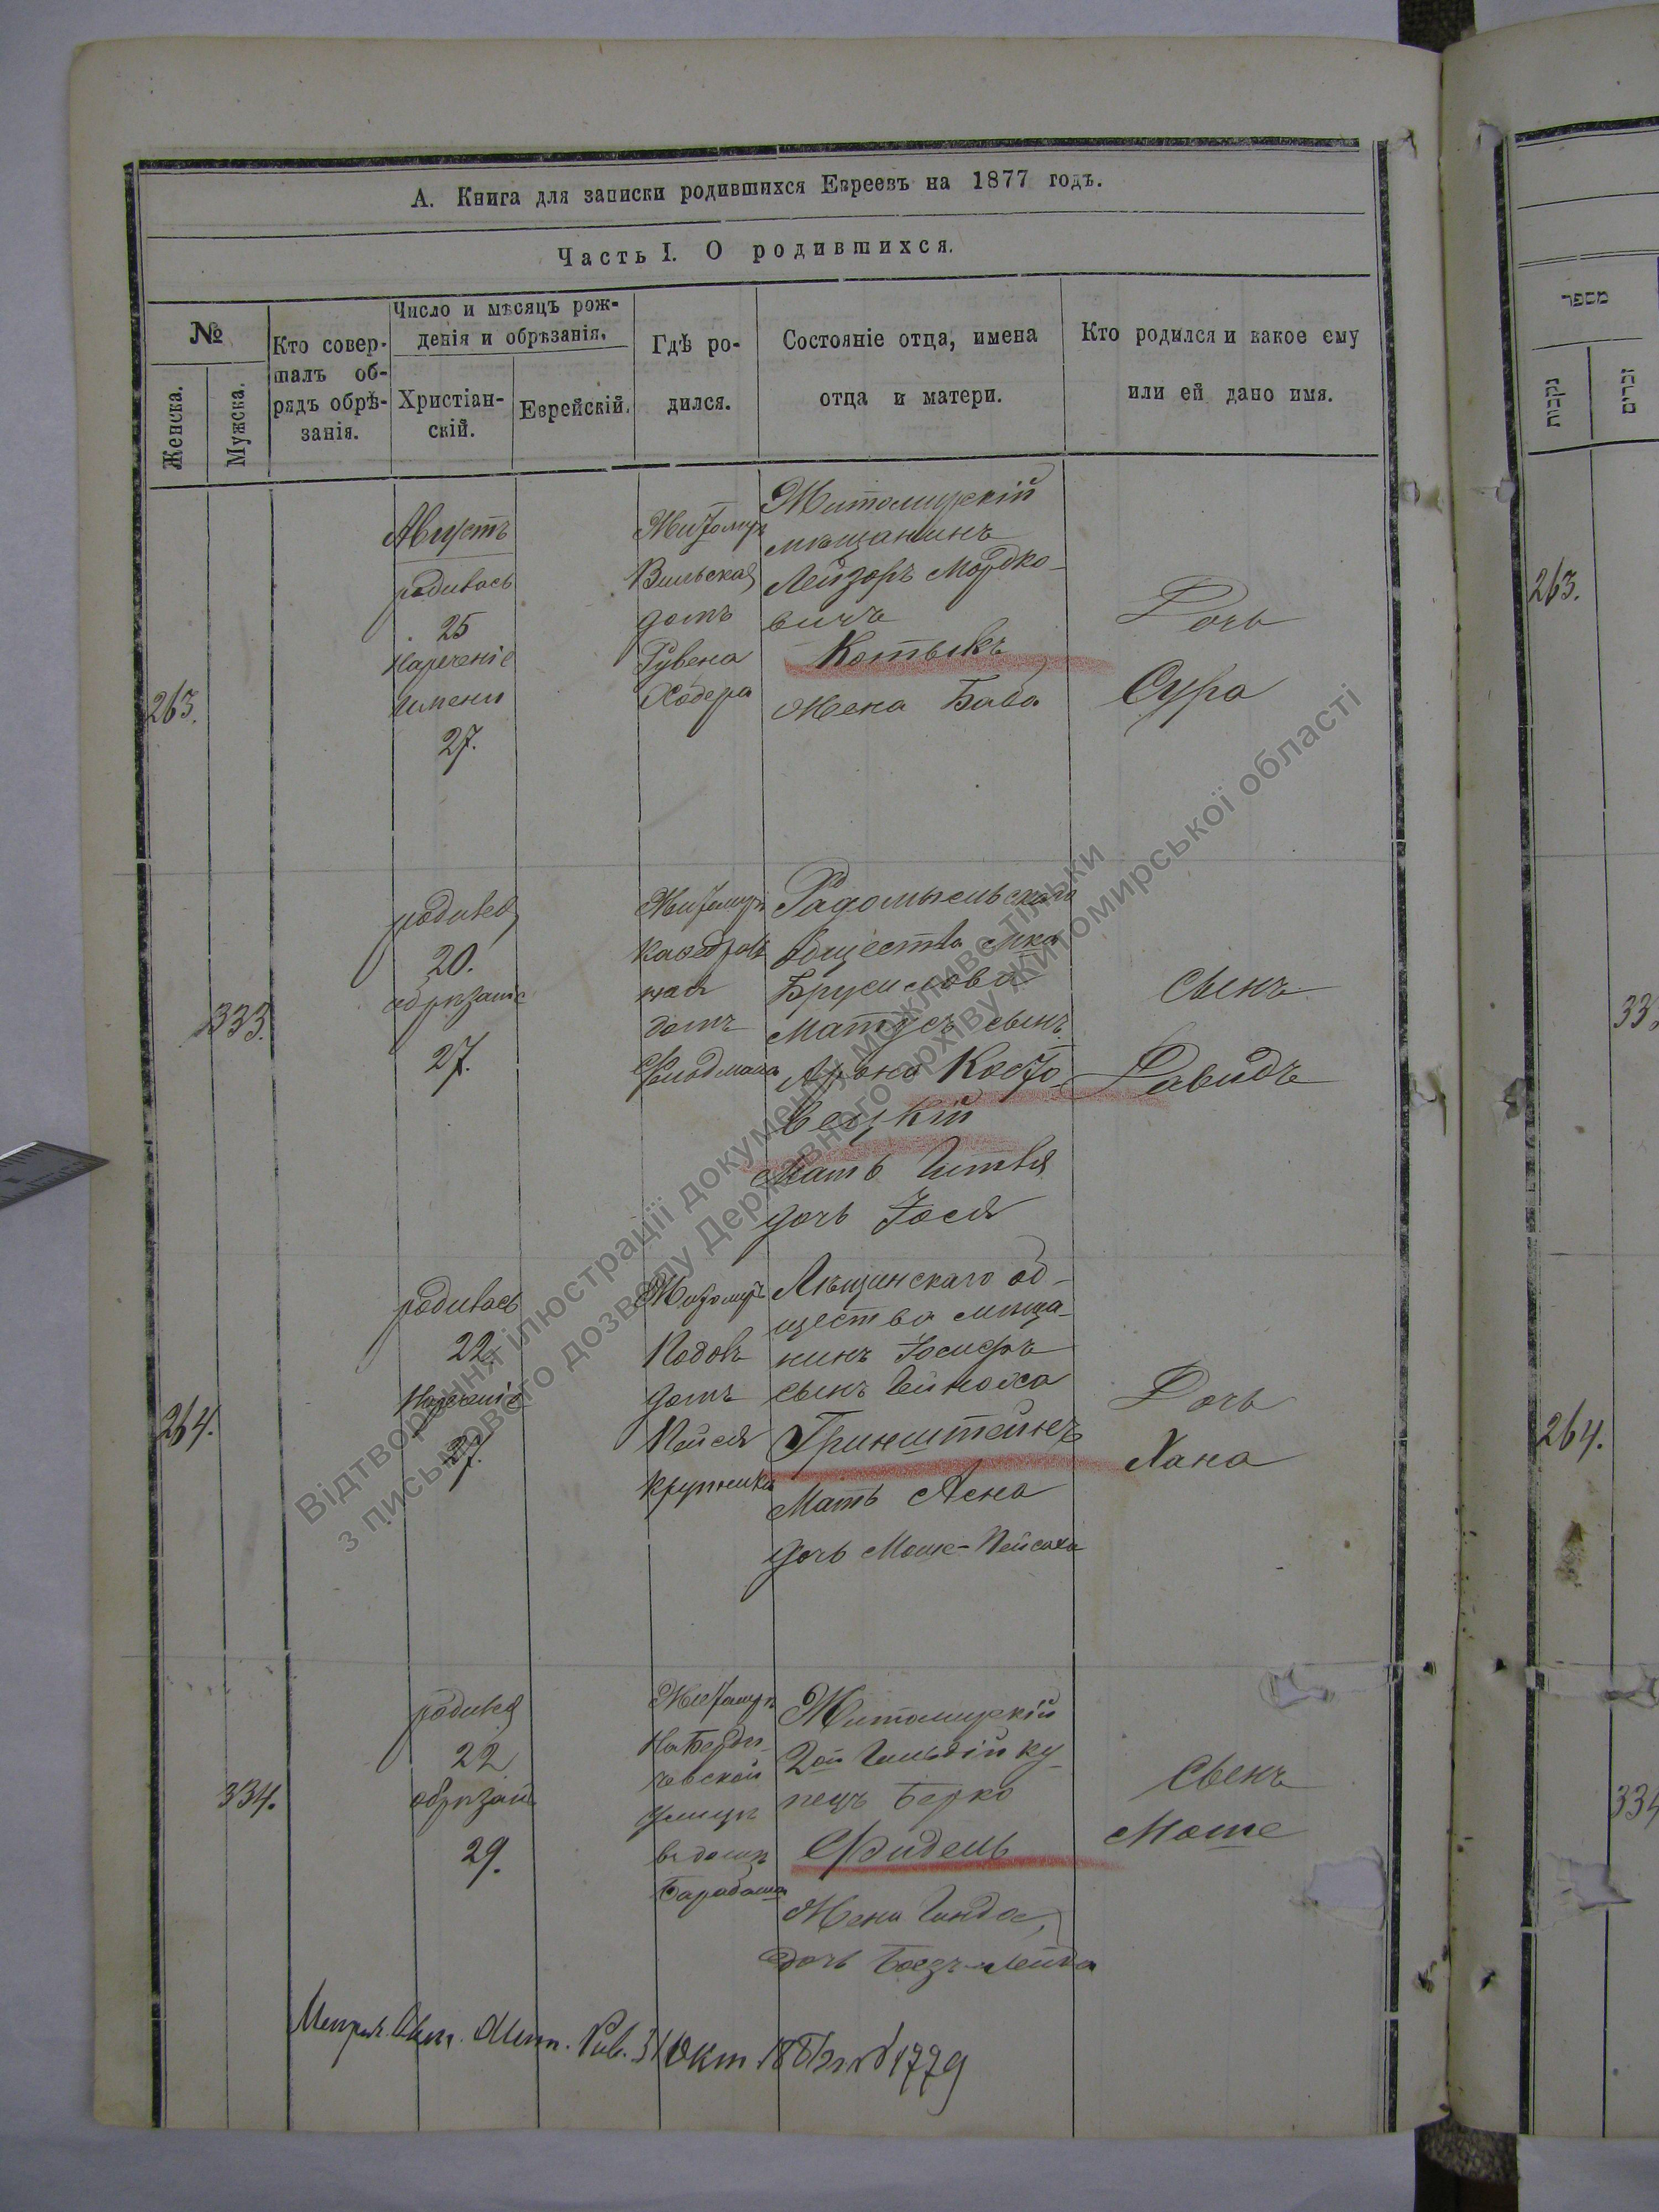 А. Книга для записки родившихся Евреевъ на 1877 годъ.
Часть I. О родившихся.
№
Женска.
Мужска.
Кто совер-
шалъ об-
рядъ обрѣ-
занія.
Число и мѣсяцъ рож-
денія и обрѣзанія.
Христіан-
скій.
Еврейскій.
Гдѣ ро-
дился.
Состояніе отца, имена
отца и матери.
Кто родился и какое ему
или ей дано имя.
263.
Августъ
родилась
25
нареченіе
имени
27.
Житомиръ
Вильская
домъ
Рувена
Ходера
Житомирскій
мѣщанинъ
Лейзоръ Мордко-
вичъ
Котыкъ
Жена Баба
Дочь
Сура
333.
родился
20.
обрѣзаніе
27.
Житомиръ
Кафедраль
ная
домъ
Радомысльскаго
общества м-ка
Брусилова
Матусъ сынъ
Арона Косто-
вецкій
Мать Гитля
дочь Іося
Сынъ
Давидъ
264.
родилась
22.
Нареченіе
27.
Житомиръ
домъ
Пейся
Крупника
общества мѣща-
нинъ Іосифъ
сынъ
Гринштейнъ
Мать Асна
дочь Мошe-Пейсаха
Дочь
Хана
334.
родился
22
обрѣзаніе
29.
Житомиръ
На Берди-
чевской
улицѣ
въ домѣ
Барабаша
Житомирскій
2ой Гильдіи ку
пецъ Берко
Фидель
Жена Гинда,
дочь Боезъ-Лейба
Сынъ
Моше
31 Окт.
№ 1779
מספר
נקבות
זכרים
263.
33
264.
334
Відтворення ілюстрації документу можливе тільки
з письмового дозволу Державного архіву Житомирської області